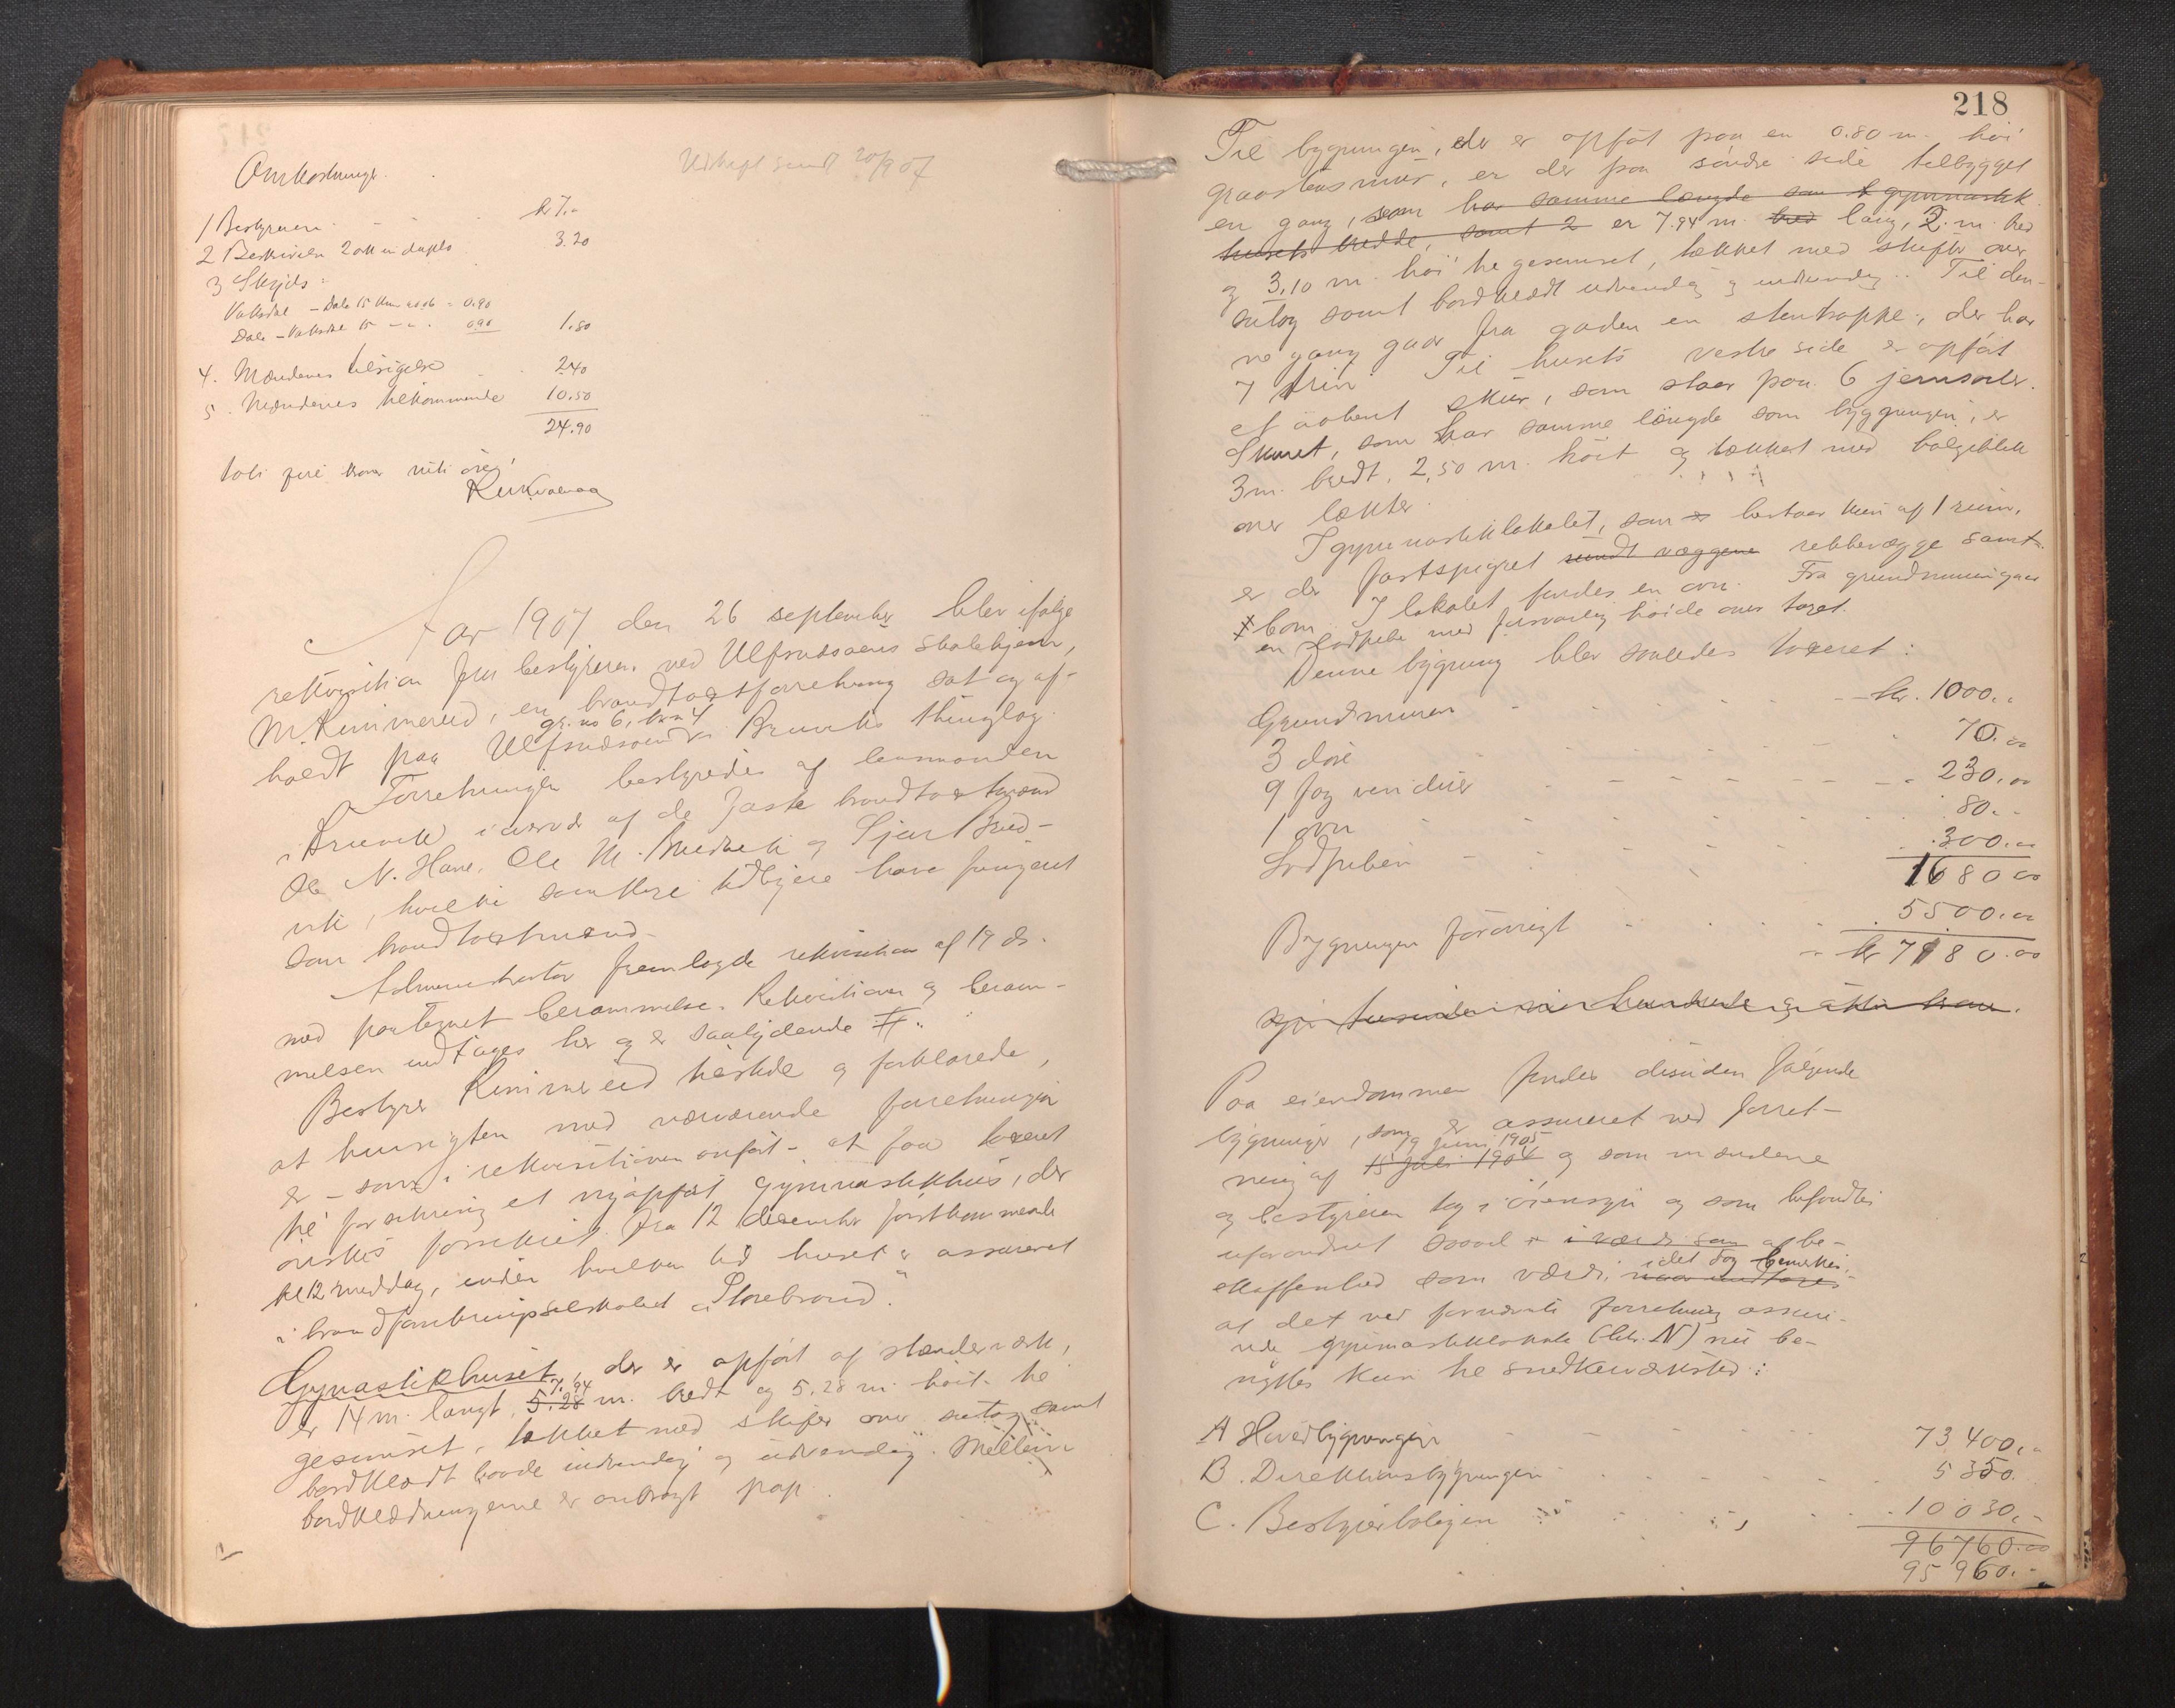 Omkostninger.
Udkopi sendt 20/9 07
1 Bestyreren - - kr 7.-
2 Beskrivelse 2 ark in duplo 3.20
3 Skyds:
Vaksdal - Dale 15 km a 06 = 0.90
Dale - Vaksdal 15 - - . 0.90 1.80
4. Mændenes tilsigelse 2.40
5. Mændenes tilkommende 10.50
24.90
toti fire kroner niti øre,
Aar 1907 den 26 september blev ifølge
rekvisition fra bestyreren ved Ulfsnesøens skolehjem,
M. Rimmereid, en brandtaxtforretning sat og af-
gr. no 6, br. no 4
holdt paa Ulfsnesøen i Bruviks thinglag.
Forretningen bestyredes af lensmanden
i Bruvik i nærvær af de faste brandtaxtmænd
Ole N. Hane, Ole M. Bruvik og Sjur Brud-
vik, hvilke samtlige tidligere have fungeret
som brandtaxtmænd.
Administrator fremlagde rekvisition af 19 ds.
med paategnet berammelse. Rekvisitionen og beram-
melsen indtages her og er saalydende #.
Bestyrer Rimmereid tilstede og forklarede,
at hensigten med nærværende forretning
er - som i rekvisitionen anført - at faa taxeret
til forsikring et nyopført gymnastikhus, der
ønskes forsikret fra 12 desember førstkommende
kl 12 middag, inden hvilken tid huset er assureret
i brandforsikringsselskabet "Storebrand."
Gymastikhuset, der er opført af stenderverk,
7.94
er 14 m. langt, 5.28 m. bredt og 5.28 m. høit til
gesimset, tækket med skifer over sutag samt
bordklædt baade indvendig og udvendig. Mellem
bordklædningerne er anbragt pap.
218
Til bygningen, der er opført paa en 0.80 m. høi
graastensmur, er der paa søndre side tilbygget
en gang, som har samme længde som gymnastik
husets bredde, samt 2 er 7.94 m. bred lang, 2. m. bred
og 3,10 m. høi til gesimset, tækket med skifer over
sutag samt bordklædt udvendig og indvendig. Til den-
ne gang gaar fra gaden en stentrappe, der har
7 trin. Til husets vestre side er opført
et aabent skur, som staar paa 6 jernsøiler.
Skuret, som har samme længde som bygningen, er
3 m. bredt, 2,50 m. høit og tækket med bølgeblik
over lækter.
I gymnastiklokalet, som er bestaar kun af 1 rum,
er der fastspigret rundt væggene ribbevægge samt
bom. I lokalet findes en ovn. Fra grundmuren gaar
en Lodpibe med forsvarlig høide over taget.
Denne bygning blev saaledes taxeret:
Grundmuren - - - - - kr. 1000.-
3 døre - - - - - 70.00
9 fag vinduer - - - - - 230.00
1 ovn - - - - - 80.-
Lodpiben - - - - - 300.00
1680 00
Bygningen forøvrigt - - - - 5500.00
kr 7180.00
syv tusinde hundrede og otti kroner.
Paa eiendommen findes desuden følgende
bygninger, som er assureret ved forret-
9 juni 1905
ning af 15 juli 1904 og som mændene
og bestyreren tog i øiensyn og som befandtes
uforandret saavel i værdi som af be-
idet dog bemerkes,
skaffenhed som værdi
at det ved forannævnte forretning assure-
rede gymnastiklokale (litr. N) nu be-
nyttes kun til snedkerværksted:
A Hovedbygningen - - - - 73,400,-
B. Direktionsbygningen - - - - 5 350.
C. Bestyrerboligen - - - - 10 030,-
96760.00
95 960.-